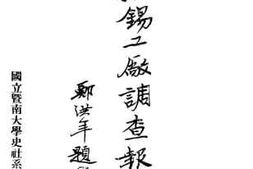 錫工廠調查報
鄭洪年題
國立暨南大學史社系